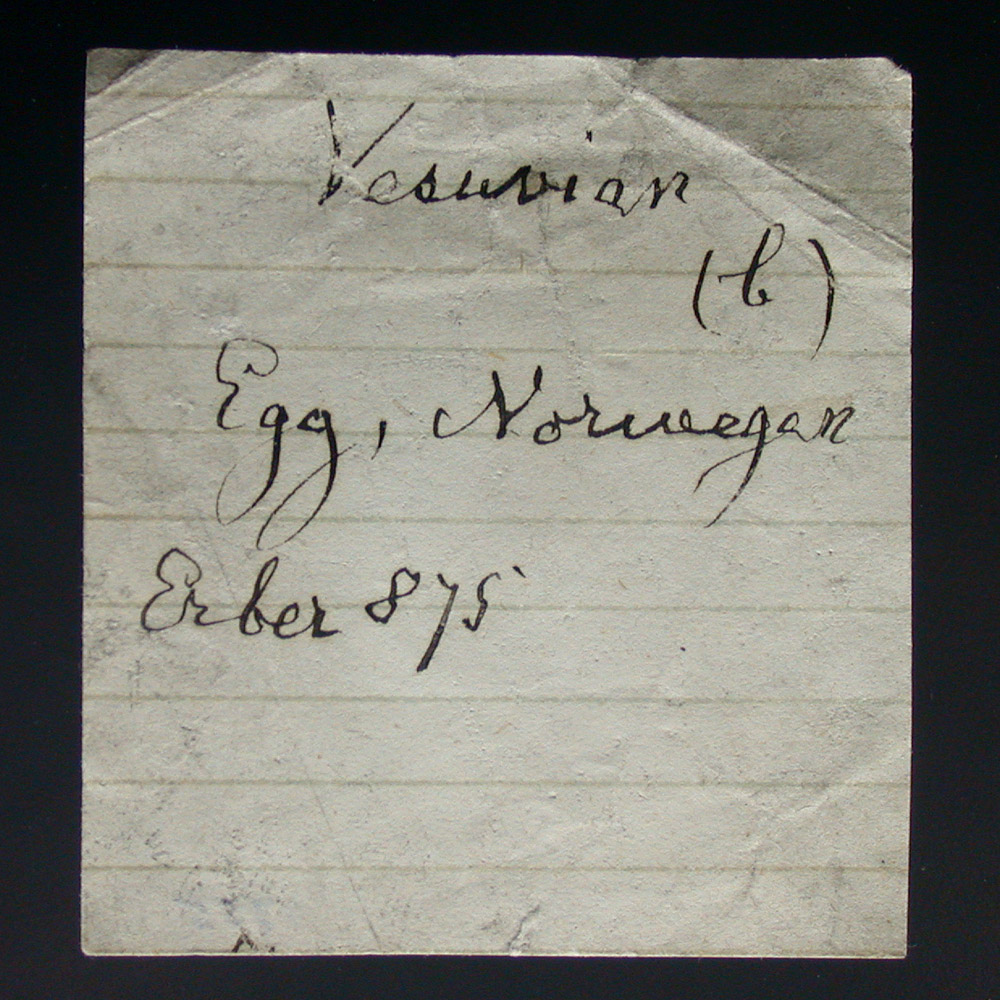 Vesuvian
(b)
Egg, Norwegan
Erber 875